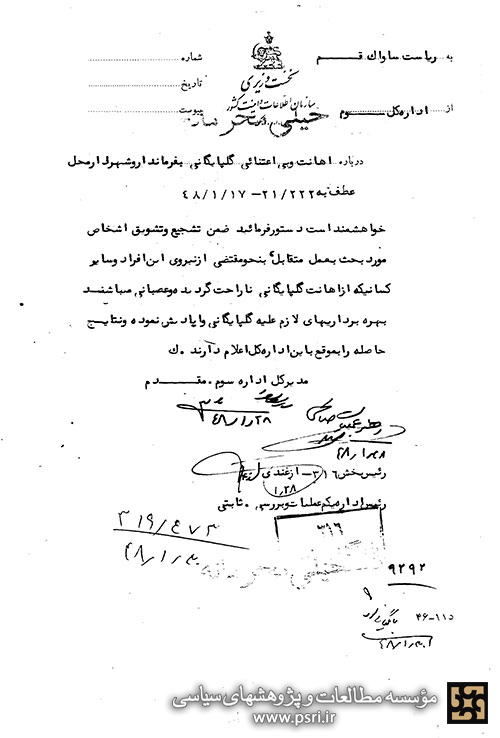 به ریاست ساواك قـــم
شماره
نخست وزیری
تاریخ
سازمان اطلاعات و امنیت کشور
از اداره کل ســـوم
پیوست
خیلی محرمانه
درباره اهانت وبی اعتنائی گلپایگانی بفرماندار و شهردار محل
عطف به ۲۱/۲۲۲-۴۸/۱/۱۷
خواهشمند است دستور فرمائید ضمن تشجیع وتشویق اشخاص
مورد بحث بعمل متقابل بنحو مقتضی از نیروی این افراد و سایر
کسانیکه از اهانت گلپایگانی ناراحت گردیده و عصبانی میباشند
بهره برداریهای لازم علیه گلپایگانی و ایادیش نموده و نتایج
حاصله را بموقع باین اداره کل اعلام دارند . ك
مدیر کل اداره سوم . مقـــدم
۴۸/۱/۲۸
رئیس بخش ۳۱۶ - ازغندی
۱/۲۸
رئیس اداره یکم عملیات و بررسی . ثابتی
۳۱۶
۳۱۹/۴۷۳
خیلی محرمانه
۹۲۹۲
۹
۴۶-۱۱۵
مؤسسه مطالعات و پژوهشهای سیاسی
www.psri.ir